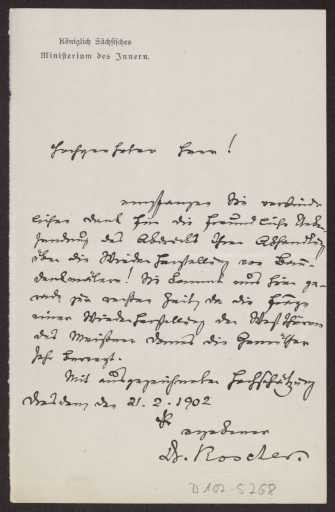 Königlich Sächsisches
Ministerium des Innern.
Hochgeehrter Herr!
empfangen Sie verbind-
lichen Dank für die freundliche Ueber-
sendung des Abdrucks Ihrer Abhandlung
über die Wiederherstellung von Bau-
denkmälern! Sie kommt uns hier ge-
rade zur rechten Zeit, da die Frage
einer Wiederherstellung der Westtürme
des Meißner Domes die Gemüther
sehr bewegt.
Mit ausgezeichneter Hochschätzung
Dresden, den 21. 2. 1902
Ihr
ergebener
Dr. Roscher.
D 102-5268